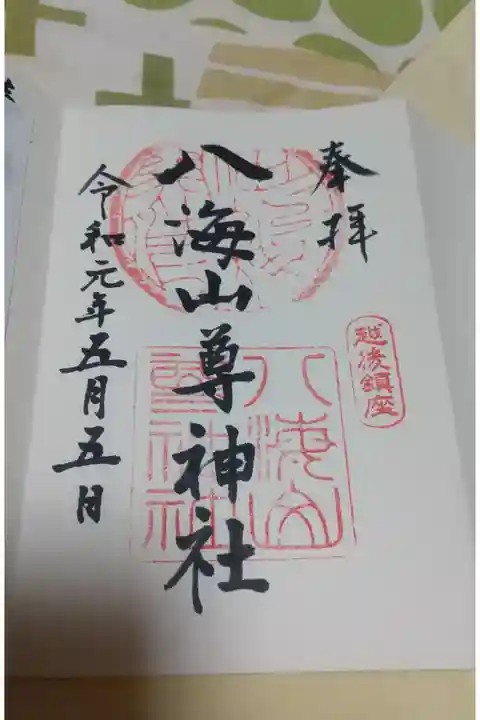 奉拝
越後鎮座
八海山尊神社
八海山
尊神社
令和元年五月五日